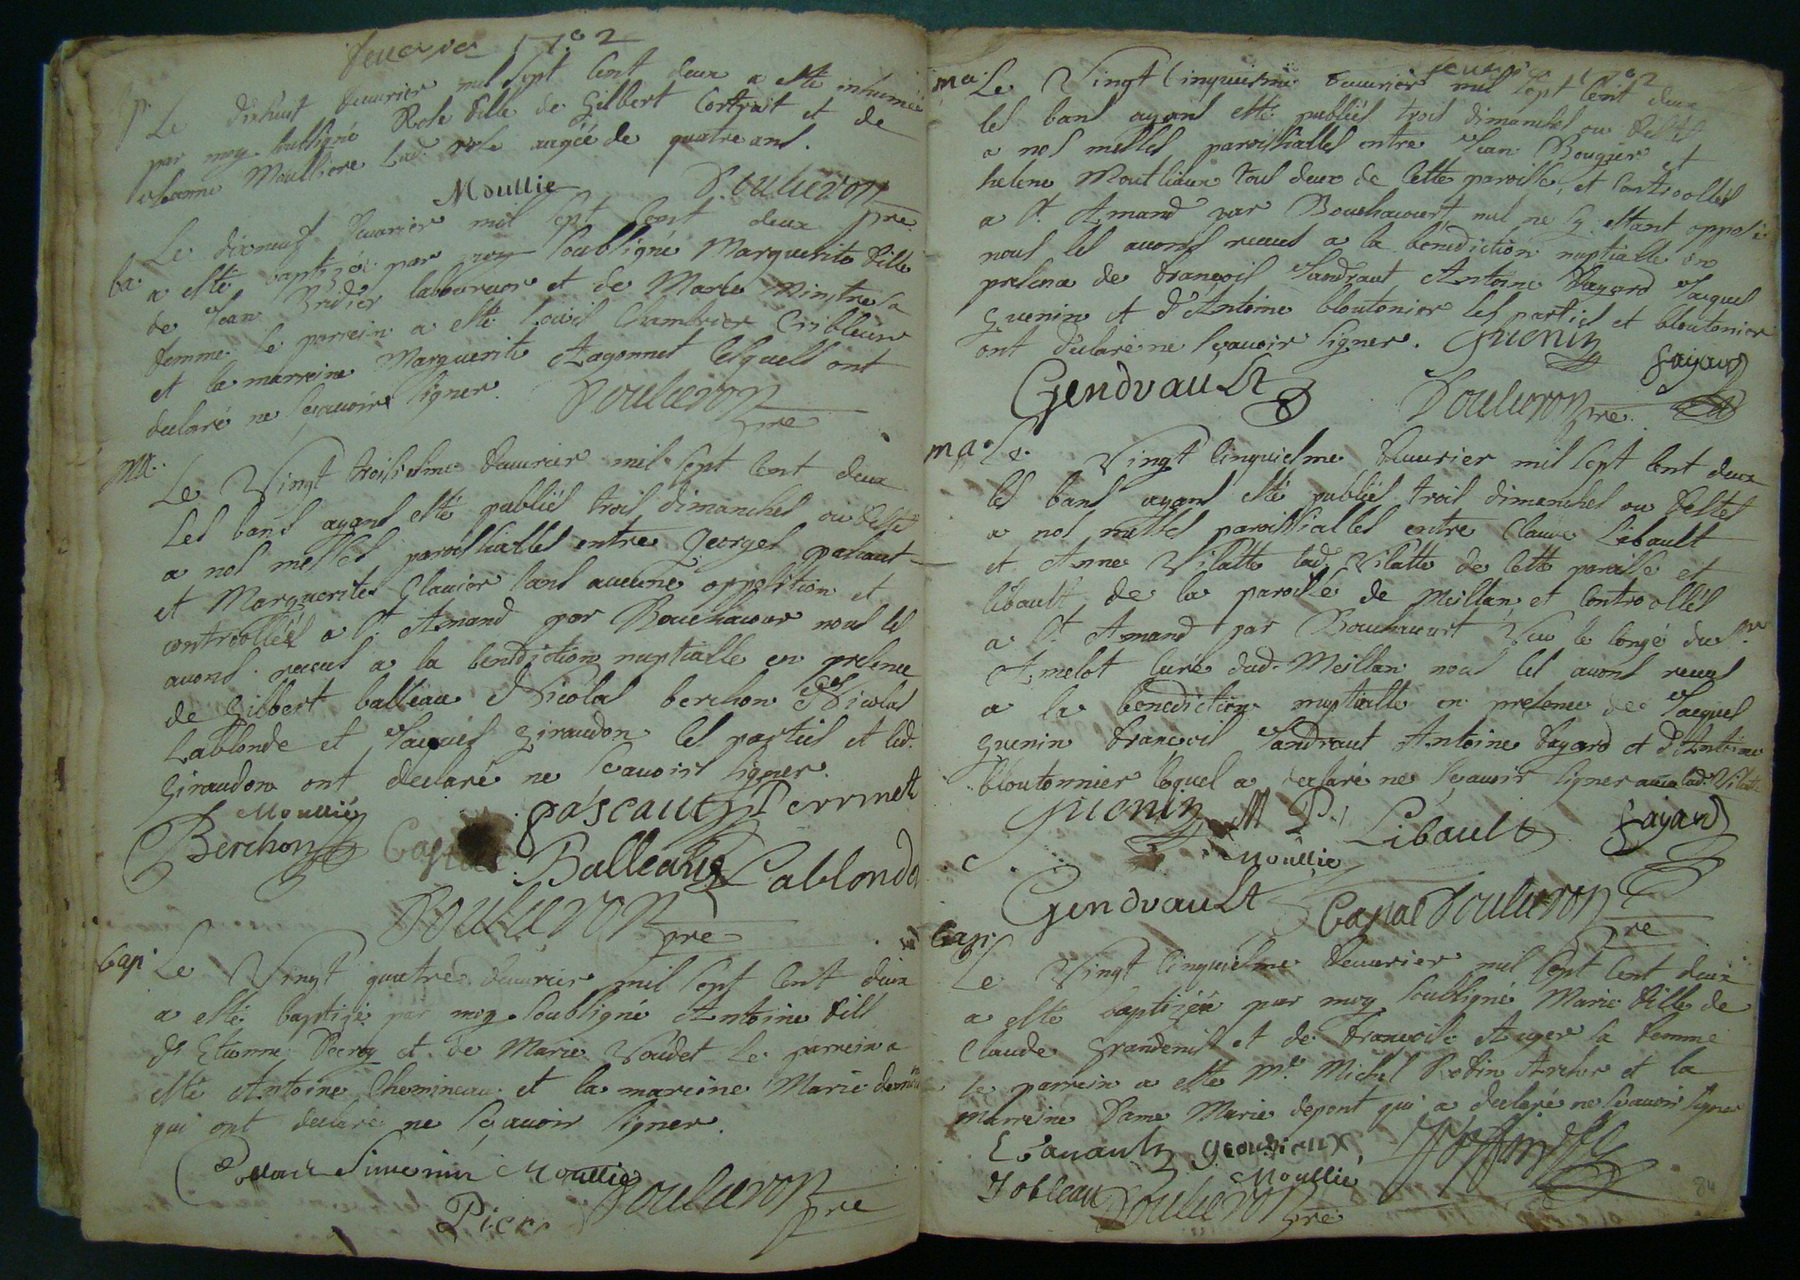 feuvrier 1702
Le dixhuit feuvrier mil sept cent deux a esté inhumée
par moy soubsigné Rose fille de Gilbert Cortrait et de
Jehanne Moulliere lad. Rose aagée de quatre ans.
Moullie Soulieron pre
ba. Le dixneuf feuvrier mil sept cent deux
a esté baptizée par moy soubsigné Marguerite fille
de Jean Bridier laboureur et de Marie Mintre sa
femme le parrein a esté Louis Chambrier Cribleur
et la marreine Marguerite Agonnet lesquels ont
declaré ne scavoir signer. Soulieron pre
ma. Le Vingt troisiesme feuvrier mil sept cent deux
les bans ayans esté publiés trois dimanches ou festes
a nos messes paroissialles entre Georges pasaut
et Marguerite Glauier sans aucune opposition et
controollées a St. Amand par Bouchacour nous les
avons receus a la benediction nuptialle en presence
de Gilbert balleau Nicolas berchon Nicolas
Lablonde et Jacques Giraudon les parties et led.
Giraudon ont declaré ne scavoir signer.
Moullié pascaut Perrinet
Berchon Balleau Lablonde
Soulieron pre
bap. Le Vingt quatre feuvrier mil sept cent deux
a esté baptizé par moy soubsigné Antoine fils
d'Etienne Decroy et de Marie Voudet le parrein a
esté Antoine Chemineau et la mareine Marie
qui ont declaré ne scavoir signer.
Simonin Moullie Soulieron pre
ma. Le Vingt cinquiesme feuvrier mil sept cent deux
les bans ayans esté publiés trois dimanches ou festes
a nos messes paroissialles entre Jean Bougier et
helene Moutliaux tous deux de cette paroisse, et controolles
a St. Amand par Bouchacourt, nul ne s'y estant opposé
nous les avons receus a la benediction nuptialle en
presence de francois Jandraut Antoine fayard Jacques
Guenin et d'Antoine bloutonier les parties et bloutonier
ont declaré ne scavoir signer. Guenin fayard
Gendrault Soulieron pre
ma. Le Vingt cinquiesme feuvrier mil sept cent deux
les bans ayans esté publiés trois dimanches ou festes
a nos messes paroissialles entre Claude Libault
et Anne Vilatte lad. Vilatte de cette paroisse et
libault de la paroisse de Meillan, et controolles
a St. Amand par Bouchacourt Veu le congé du Sr.
Amelot curé dud. Meillan nous les avons receus
a la benediction nuptialle en presence de Jacques
Guenin francois Jandraut Antoine fayard et d'Antoine
bloutonnier lequel a declaré ne scavoir signer avec lad. Vilatte
Guenin M P. Libault fayard
Moullie
Gendrault Capial Soulieron pre
bap. Le Vingt cinquiesme feuvrier mil sept cent deux
a esté baptizée par moy soubsigné Marie fille de
Claude Grandenis et de francoise Auger sa femme
le parrein a esté Me. Michel Robin Archer et la
marreine Dame Marie depont qui a declaré ne scavoir signer
Moullié
Jobleau Soulieron pre
84